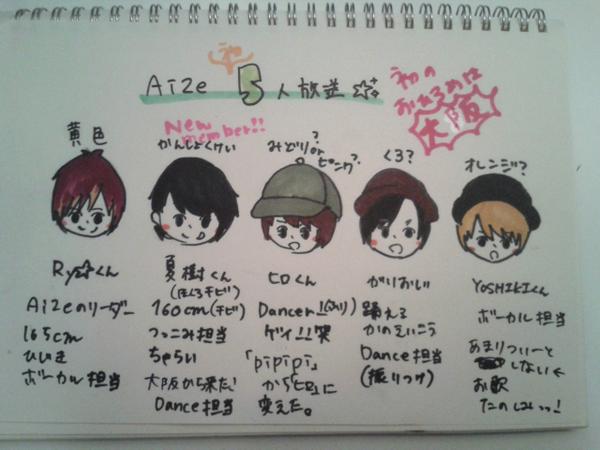 Aize 初 5人放送
初の
おひろめは
大阪
黄色
New member!!
かんしょくけい
みどりor
ピンク?
くろ?
オレンジ?
Ry☆くん
Aizeのリーダー
165cm
ひいき
ボーカル担当
夏樹くん
(ほくろチビ)
160cm(チビ)
つっこみ担当
ちゃらい
大阪から来た!
Dance担当
ヒロくん
Dancer
ゲイ!!笑
「pipipi」
から「ヒロ」に
変えた。
がりおじい
踊える
かのえいこう
Dance担当
(振りつけ)
YOSHIKIくん
ボーカル担当
あまりついーと
しない←
お歌
たのしみっ!